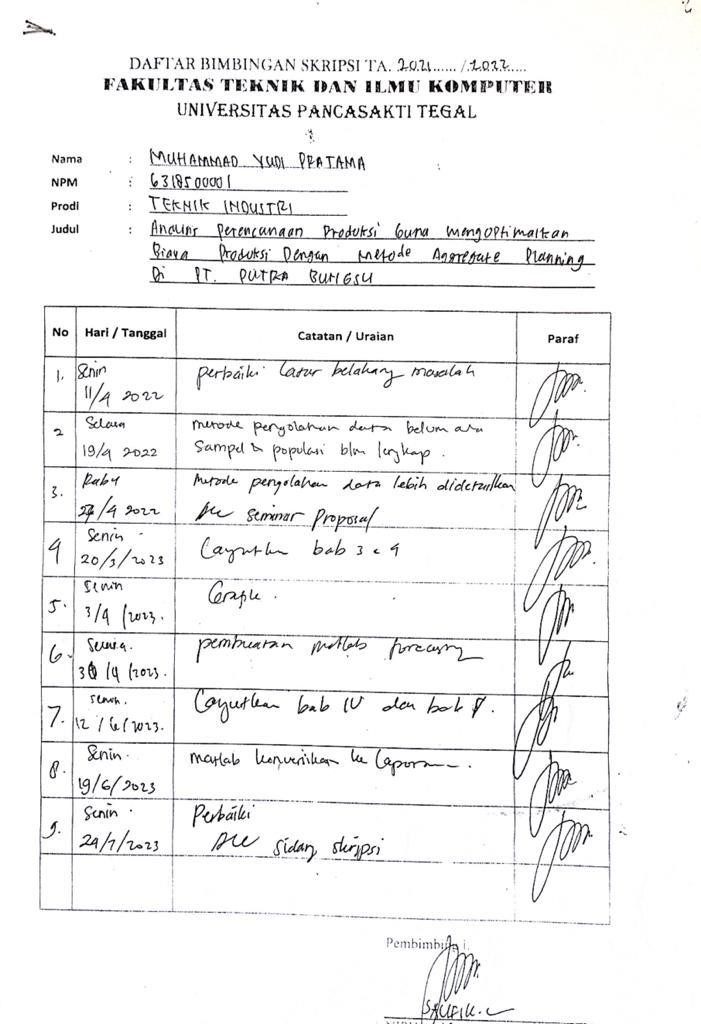 DAFTAR BIMBINGAN SKRIPSI TA. 2021...... / 2022.....
FAKULTAS TEKNIK DAN ILMU KOMPUTER
UNIVERSITAS PANCASAKTI TEGAL
Nama : MUHAMMAD YUDI PRATAMA
NPM : 6318500001
Prodi : TEKNIK INDUSTRI
Judul : Analisis Perencanaan Produksi Guna mengoptimalkan
Biaya Produksi Dengan metode Aggregate Planning
Di PT. PUTRA BUNGSU
No Hari / Tanggal Catatan / Uraian Paraf
1. Senin perbaiki latar belakang masalah
11/4 2022
2 Selasa metode pengolahan data belum ada
19/4 2022 Sampel & populasi blm lengkap.
3. Rabu Metode pengolahan data lebih didetailkan
/4 2022 Acc seminar Proposal
4 Senin Lanjutkan bab 3 & 4
20/3/2023
5. Senin
3/4/2023.
6. pembuatan matlab
/4/2023.
7. Senin. Lanjutkan bab IV dan bab V.
12/6/2023.
8. Senin. matlab ke laporan
19/6/2023
9. Senin Perbaiki
24/7/2023 Acc sidang skripsi
Pembimbing I.